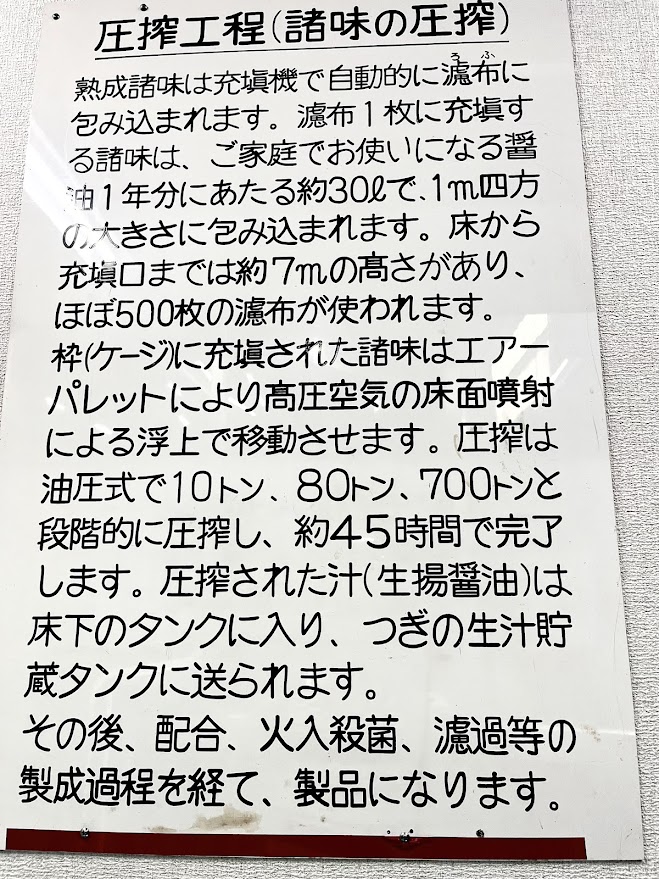 圧搾工程(諸味の圧搾)
熟成諸味は充塡機で自動的に濾布に
ろふ
包み込まれます。濾布1枚に充塡す
る諸味は、ご家庭でお使いになる醤
油1年分にあたる約30ℓで、1m四方
の大きさに包み込まれます。床から
充塡口までは約7mの高さがあり、
ほぼ500枚の濾布が使われます。
枠(ケージ)に充塡された諸味はエアー
パレットにより高圧空気の床面噴射
による浮上で移動させます。圧搾は
油圧式で10トン、80トン、700トンと
段階的に圧搾し、約45時間で完了
します。圧搾された汁(生揚醤油)は
床下のタンクに入り、つぎの生汁貯
蔵タンクに送られます。
その後、配合、火入殺菌、濾過等の
製成過程を経て、製品になります。